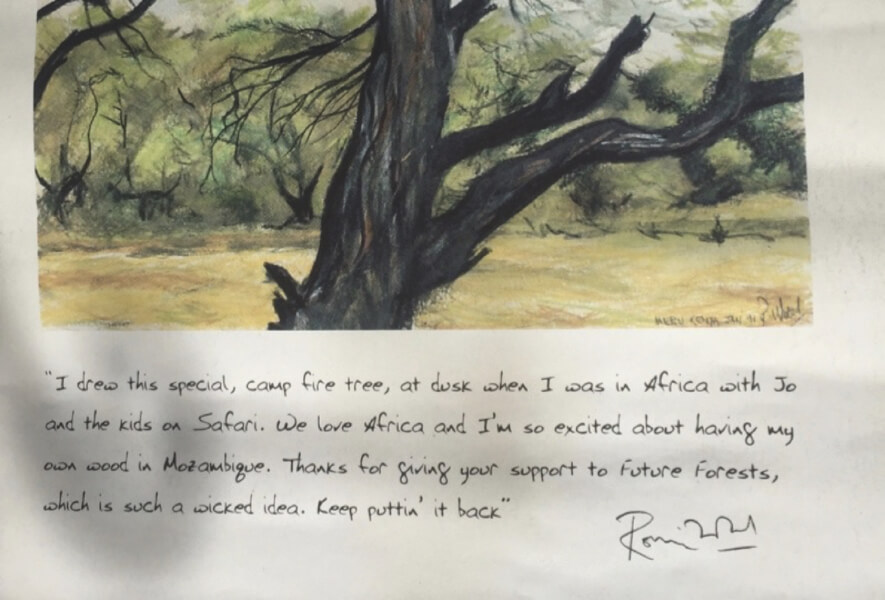 R Wood
"I drew this special, camp fire tree, at dusk when I was in Africa with Jo
and the kids on Safari. We love Africa and I'm so excited about having my
own wood in Mozambique. Thanks for giving your support to Future Forests,
which is such a wicked idea. Keep puttin' it back"
Ronnie Wood